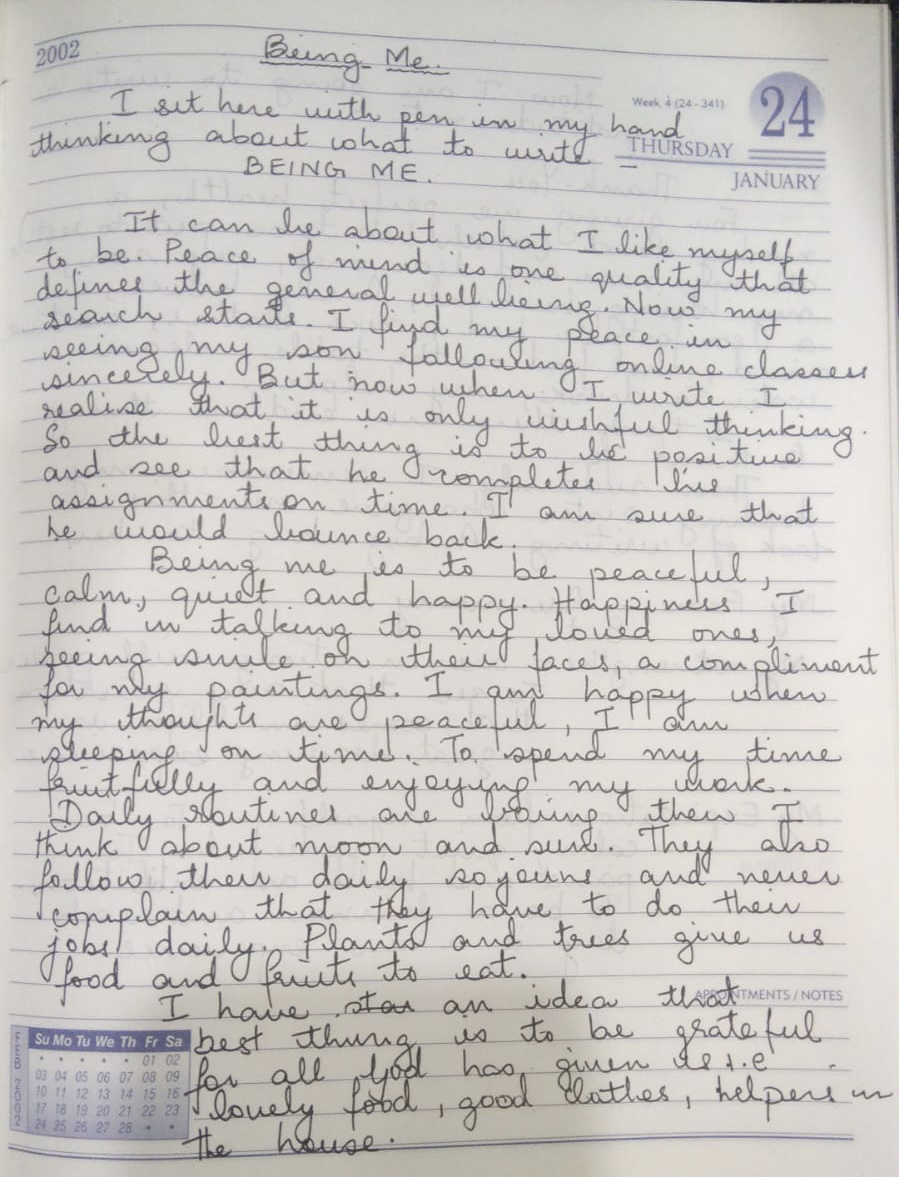 2002
Being Me.
Week 4 (24 - 341)
24
I sit here with pen in my hand
thinking about what to write -
THURSDAY
BEING ME.
JANUARY
It can be about what I like myself
to be. Peace of mind is one quality that
defines the general well being. Now my
search starts. I find my peace in
seeing my son following online classes
sincerely. But now when I write I
realise that it is only wishful thinking.
So the best thing is to be positive
and see that he completes his
assignments on time. I am sure that
he would bounce back.
Being me is to be peaceful,
calm, quiet and happy. Happiness I
find in talking to my loved ones,
seeing smile on their faces, a compliment
for my paintings. I am happy when
my thoughts are peaceful, I am
sleeping on time. To spend my time
fruitfully and enjoying my work.
Daily routines are boring then I
think about moon and sun. They also
follow their daily sojourns and never
complain that they have to do their
jobs daily. Plants and trees give us
food and fruits to eat.
I have an idea that
APPOINTMENTS / NOTES
best thing is to be grateful
for all God has given us i.e
lovely food, good clothes, helpers in
the house.
FEB 2002
Su Mo Tu We Th Fr Sa
• • • • • 01 02
03 04 05 06 07 08 09
10 11 12 13 14 15 16
17 18 19 20 21 22 23
24 25 26 27 28 • •